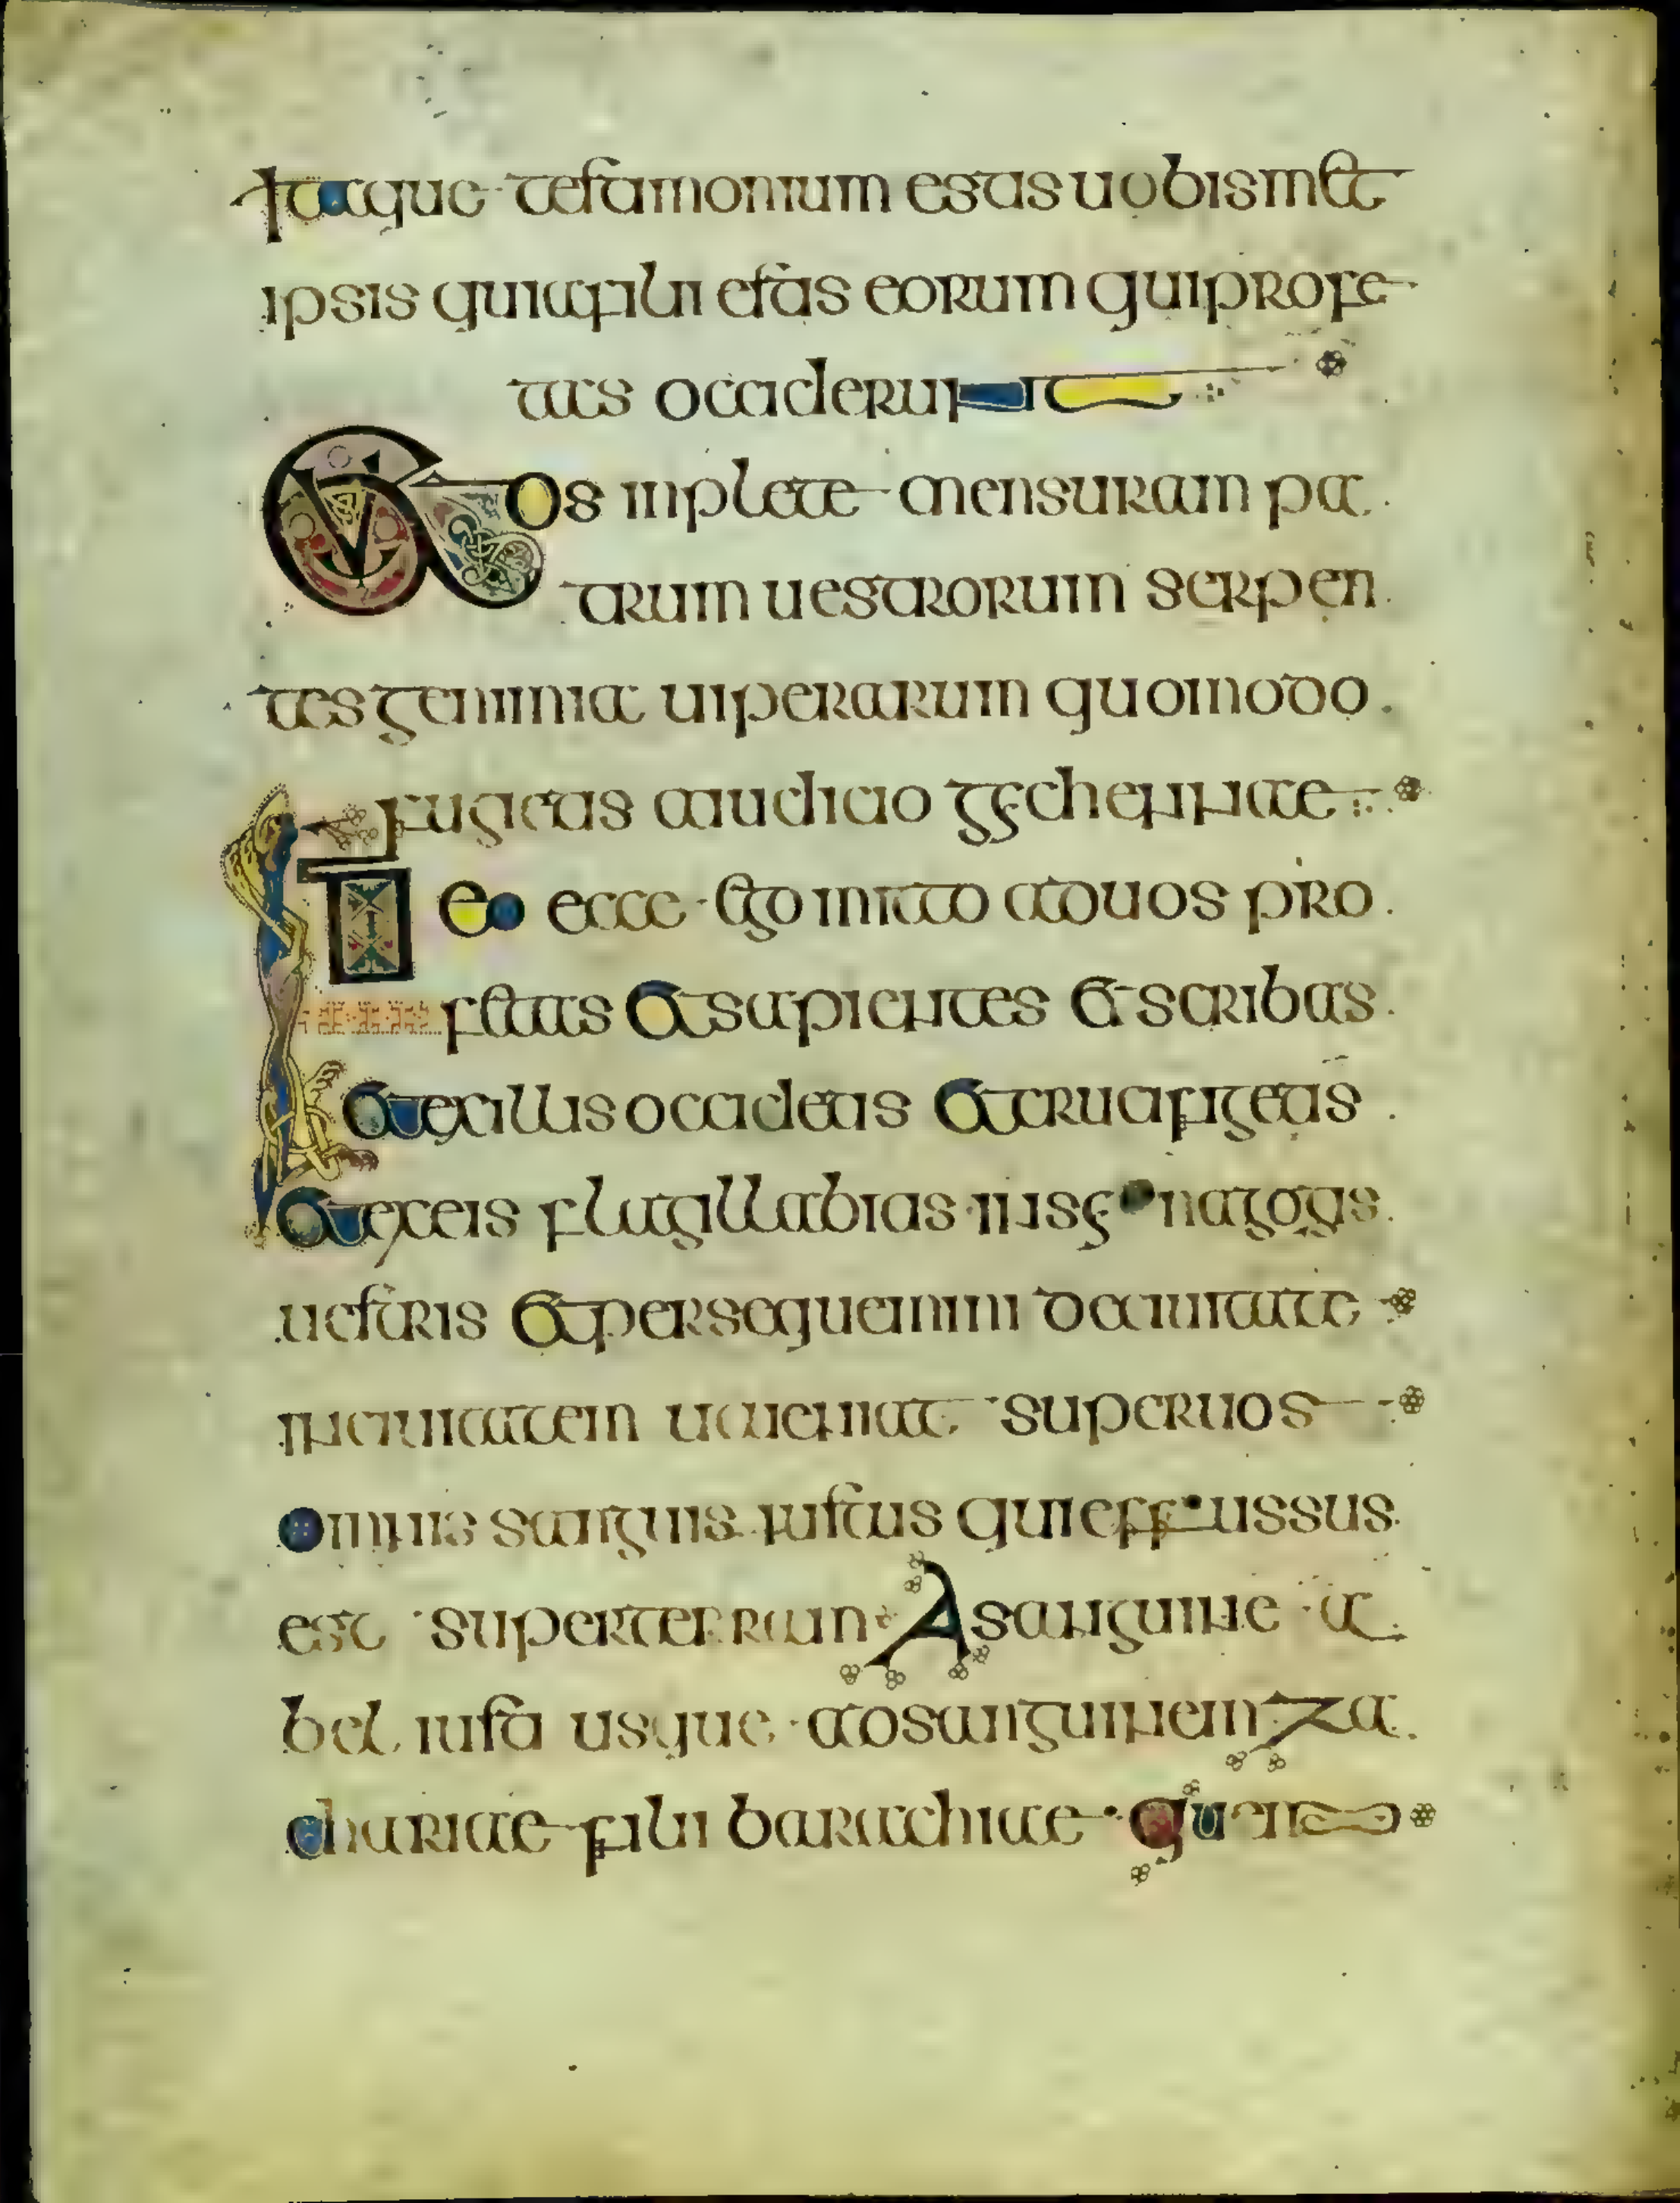 Itaque testamonium estis uobismet
ipsis quia filii estis eorum qui profe
tas occiderunt
Et uos inplete mensuram pa
trum uestrorum serpen
tes geminia uiperarum quomodo
fugietis a iudicio gechennae
Ideo ecce ego mitto ad uos pro
fetas et sapientes et scribas
et ex illis occidetis et crucifigetis
et ex eis flagillabitis in sinagogis
uestris et persequemini de ciuitate
in ciuitatem ut ueniat super uos
omnis sanguis iustus qui effussus
est super terram A sanguine a
bel iusti usque ad sanguinem za
chariae filii barachiae quem